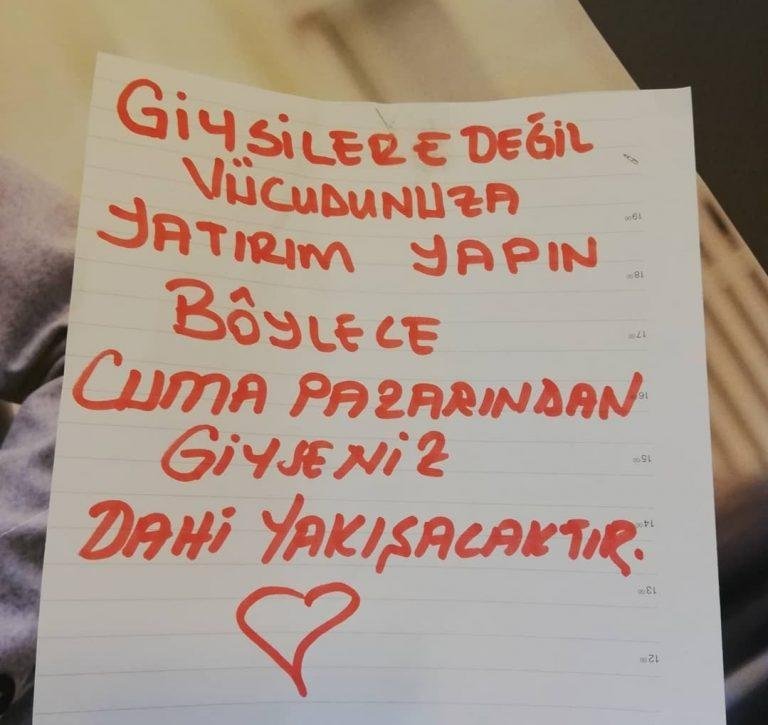 GİYSİLERE DEĞİL
VÜCUDUNUZA
YATIRIM YAPIN
BÖYLECE
CUMA PAZARINDAN
GİYSENİZ
DAHİ YAKIŞACAKTIR.
19⁰⁰
18⁰⁰
17⁰⁰
16⁰⁰
15⁰⁰
14⁰⁰
13⁰⁰
12⁰⁰